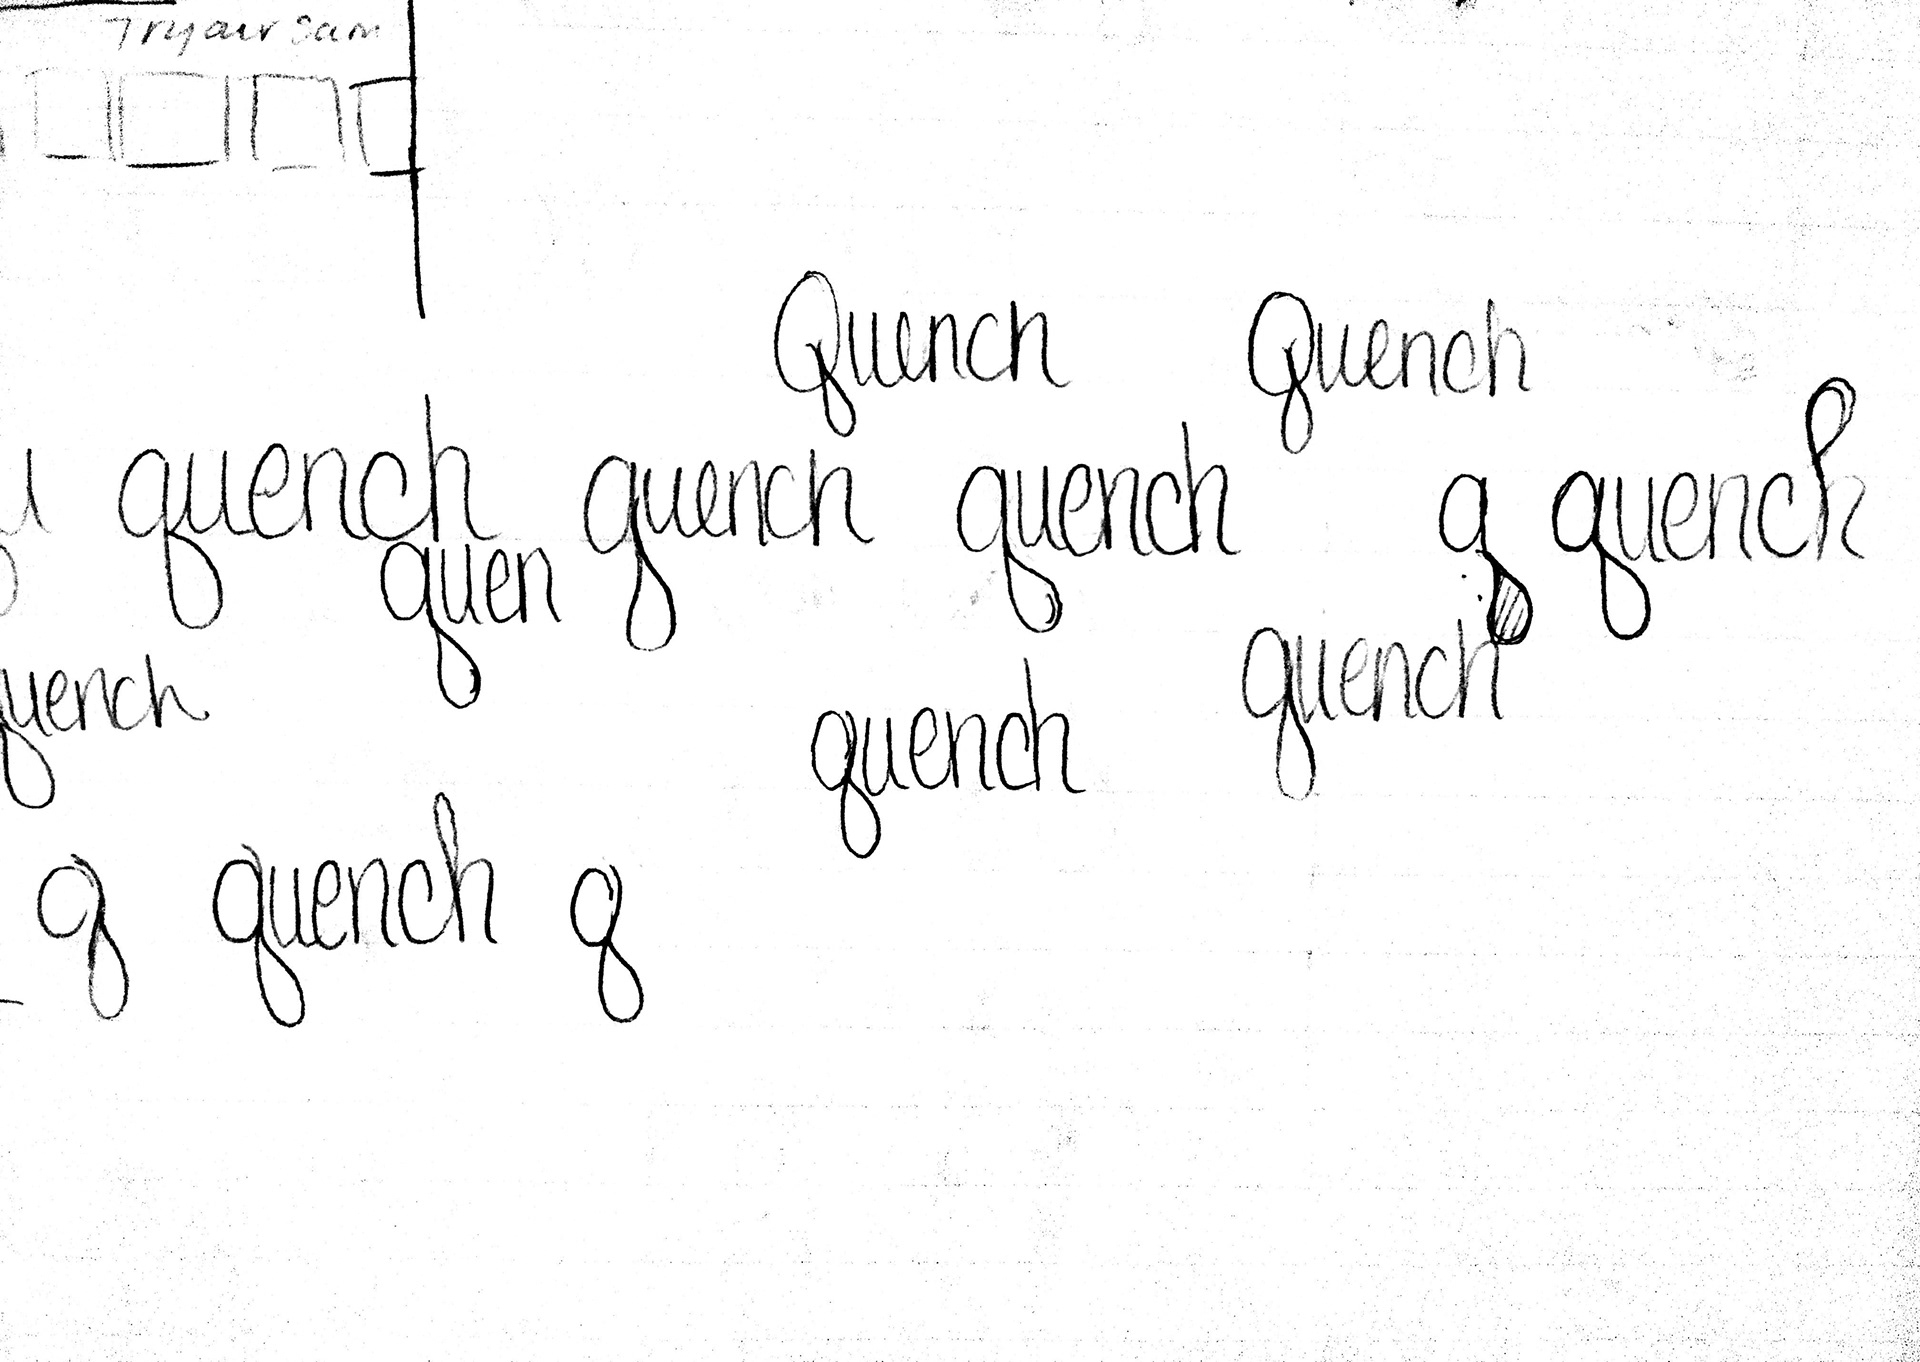 Try our Sam
Quench Quench
u quench quench quench q quench
quen
quench quench quench
q quench q